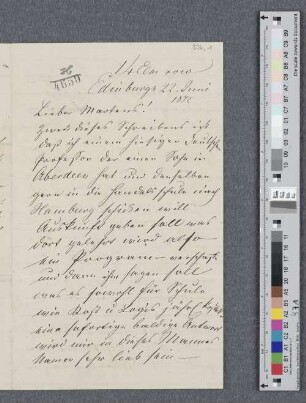 14 Elm row
Edinburgh 22. Juni
Lieber Martens!
Zweck dieses Schreibens ist
daß ich einem hiesigen deutsch
Professor der einen Sohn in
Aberdeen hat und denselben
gern in die Handelsschule nach
Hamburg schicken will
Auskunft geben soll was
dort gelehrt wird also
ein Programm verschaffe
und dann ihm sagen soll
was es sowohl für Schule
wie Kost u Logis
eine sofortige baldige Antwort
wird mir in dieses Mannes
Namen sehr lieb sein